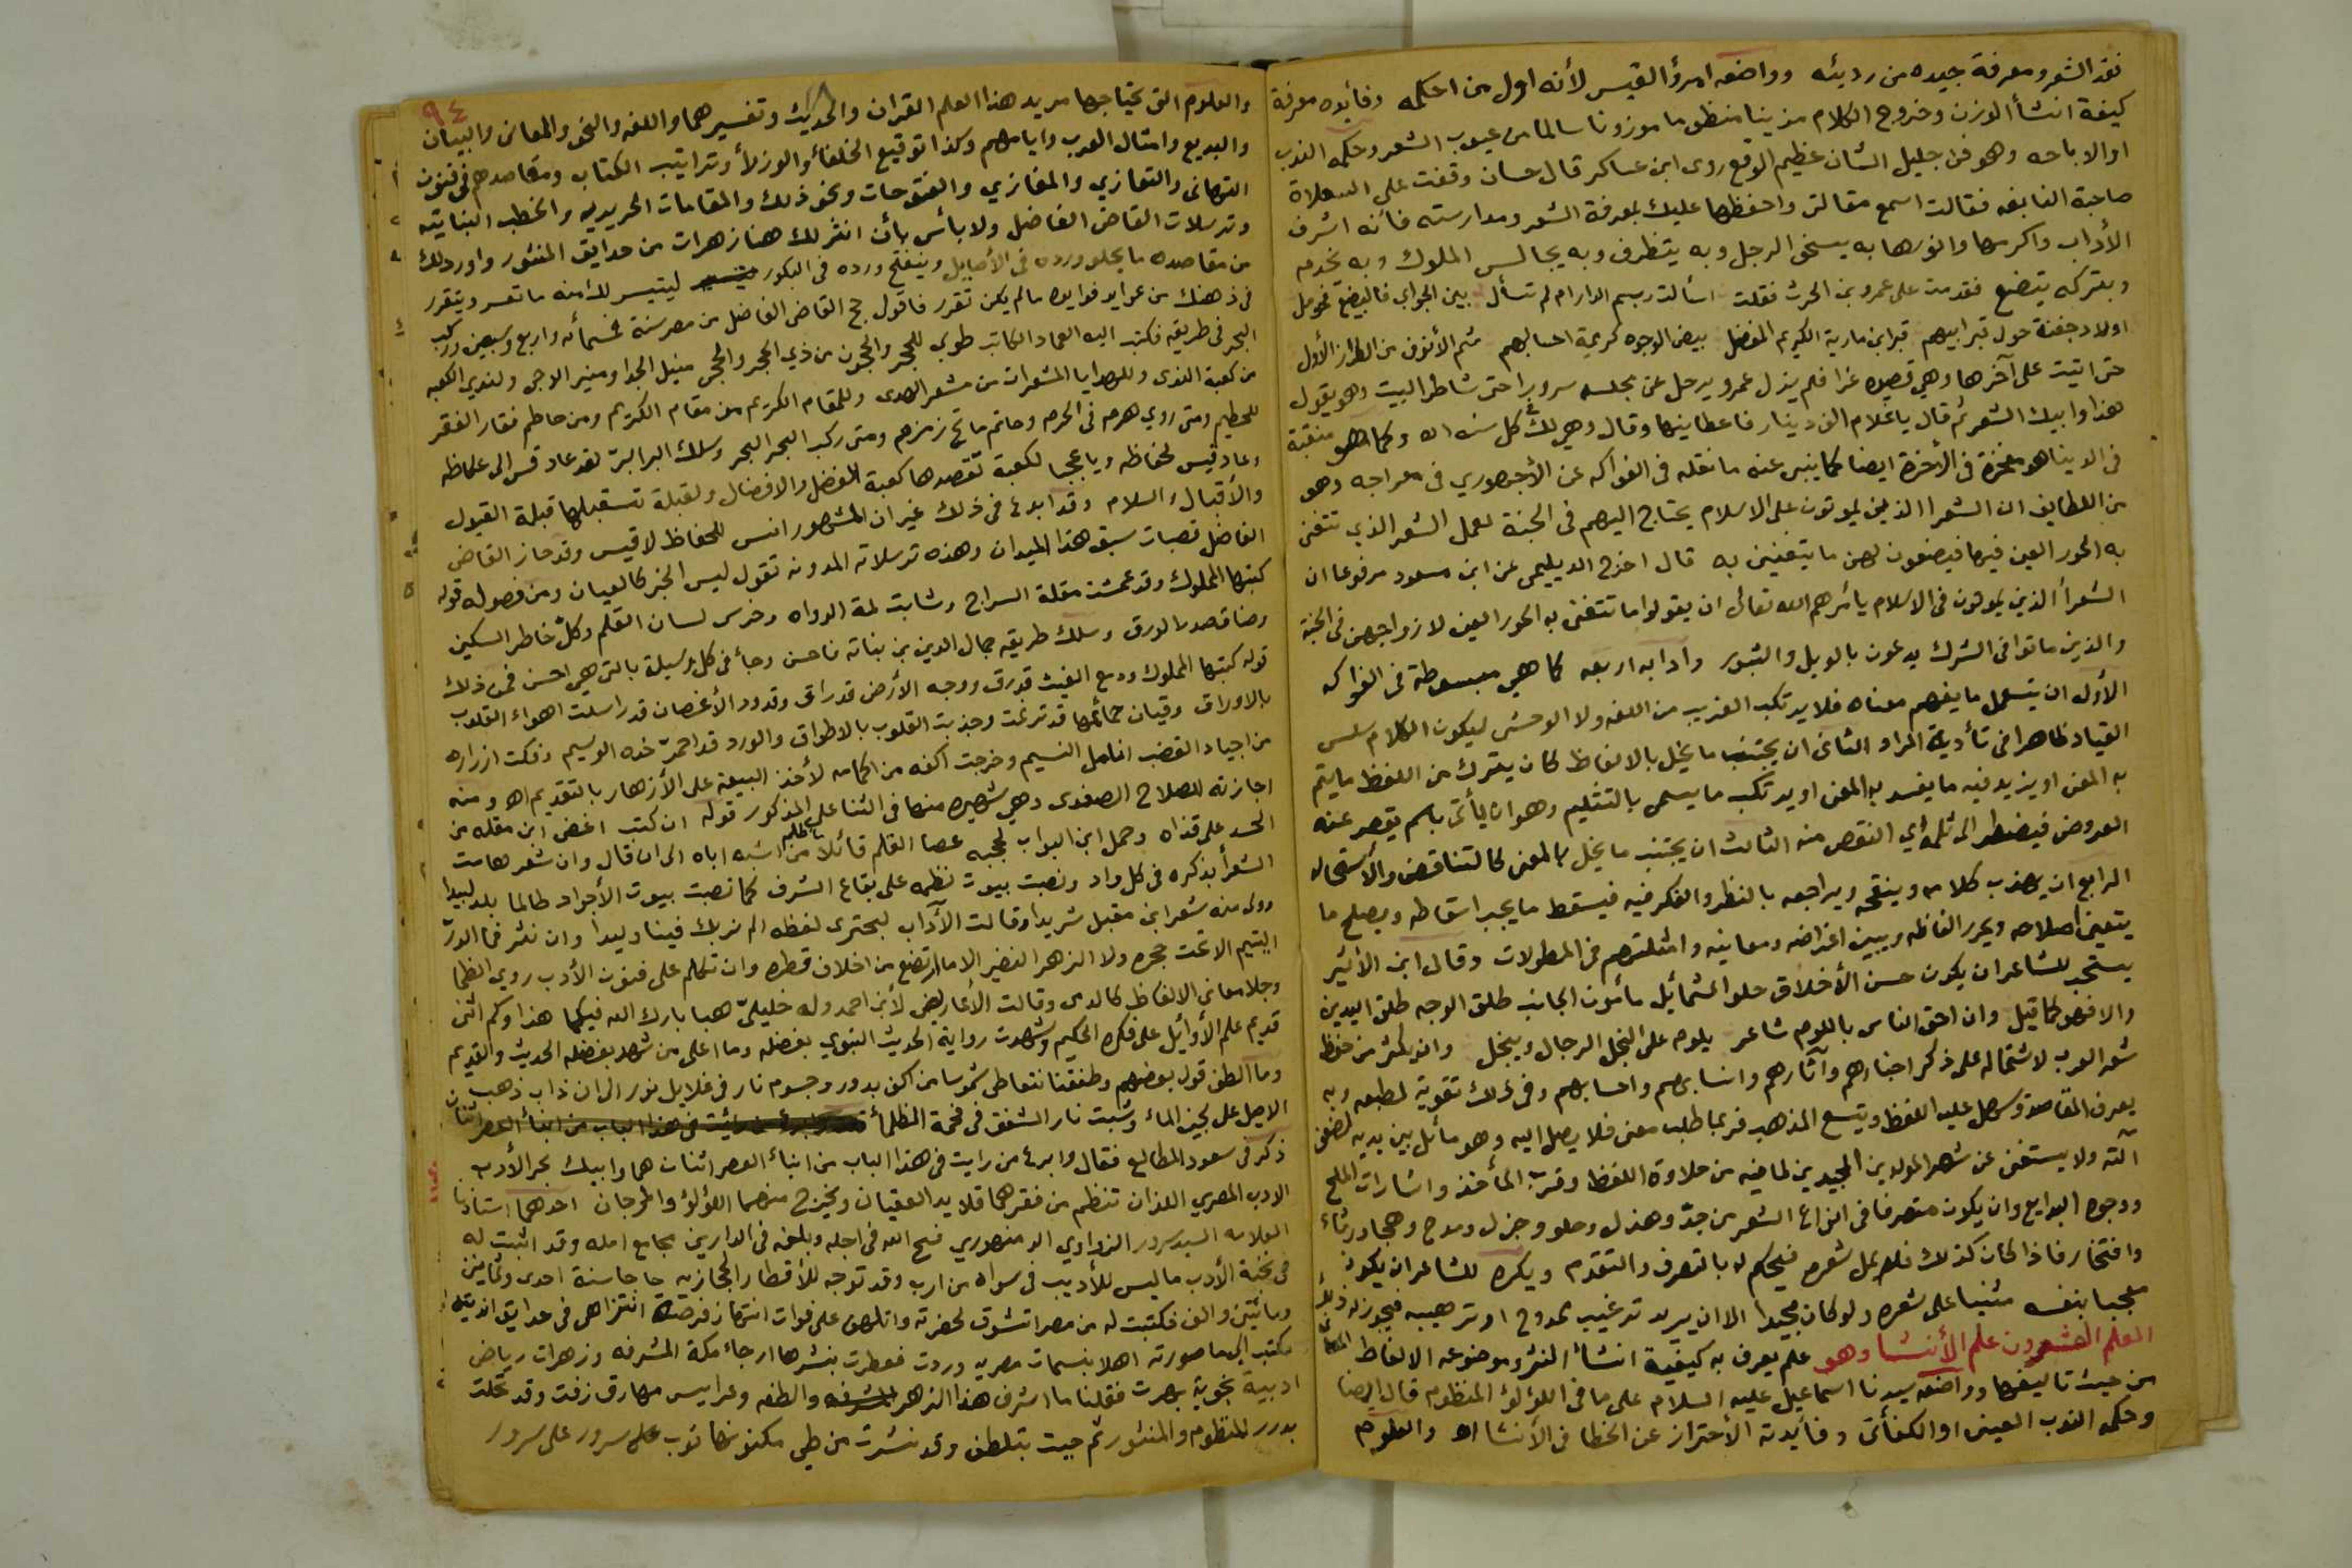 نقد الشعر ومعرفة جيده من رديئه وواضعه امرؤ القيس لأنه اول من احكمه وفائده معرفة
كيفة انشأ الوزن وخروج الكلام مزينا منظوما موزونا سالما من عيوب الشعر وحكمه الندب
او الاباحه وهو فن جليل الشان عظيم الوقع روى ابن عساكر قال حسان وقفت على السعلاة
صاحبة النابغه فقالت اسمع مقالتى واحفظها عليك بمعرفة الشعر ومدارسته فانه اشرف
الأداب واكرمها وانورها به يسخى الرجل وبه يتظرف وبه يجالس الملوك وبه يخدم
وبتركه يتضع فقدمت على عمرو بن الحرث فقلت اسألت رسم الدار ام لم تسأل بين الجوابي فالبضيع فحومل
اولاد جفنة حول قبر ابيهم قبر ابن مارية الكريم المفضل بيض الوجوه كريمة احسابهم شم الأنوف من الطراز الأول
حتى اتيت على آخرها وهي قصيده غرا فلم يزل عمرو يرحل عن مجلسه سرورا حتى شاطر البيت وهو يقول
هذا وابيك الشعر ثم قال ياغلام الف دينار فاعطانيها وقال وهي لك كل سنه اه وكما هو منقبة
فى الدينا هو مفخرة فى الأخرة ايضا كما ينبى عنه ما نقله فى الفواكه عن الأجهوري فى معراجه وهو
من اللطايف ان الشعرا الذين يموتون على الاسلام يحتاج اليهم فى الجنة لعمل الشعر الذي تتغنى
به الحور العين فيها فيصفون لهن ما يتغنين به قال اخرج الديليمى عن ابن مسعود مرفوعا ان
الشعرأ الذين يموتون فى الاسلام يامرهم الله تعالى ان يقولوا ما تتغنى به الحور العين لازواجهن فى الجنة
والذين ماتوا فى الشرك يدعون بالويل والثبور وادابه اربعه كما هي مبسوطة فى الفواكه
الأول ان يتسعمل ما يفهم معناه فلا يرتكب الغريب من اللغه ولا الوحشى ليكون الكلام سلس
القياد ظاهرا فى تأدية المراد الثانى ان يجتنب ما يخل بالالفاظ كان يترك من اللفظ ما يتم
به المعنى او يزيد فيه ما يفسد به المعنى او يرتكب ما يسمى بالتثليم وهو ان يأتى باسم يقصر عنه
العروض فيضطر الى ثلمه اي النقص منه الثالث ان يجتنب ما يخل بالمعنى كالتناقض والأستحاله
الرابع ان يهذب كلامه وينقحه ويراجعه بالنظر والفكر فيه فيسقط ما يجب اسقاطه ويصلح ما
يتعين اصلاحه ويحرر الفاظه ويبين اغراضه ومعانيه وامثلتهم فى المطولات وقال ابن الأثير
يستحب للشاعر ان يكون حسن الأخلاق حلو الشمائيل مأمون الجانب طلق الوجه طلق اليدين
والا فهو كما قيل وان احق الناس باللوم شاعر يلوم على البخل الرجال ويبخل وان يكثر من حفظ
شعر العرب لاشتماله على ذكر اخبارهم وآثارهم وانسابهم واحسابهم وفى ذلك تقوية لطبعه وبه
يعرف المقاصد ويسهل عليه اللفظ ويتسع المذهب فربما طلب معنى فلا يصل اليه وهو مأئل بين يديه لضعف
آلته ولا يستغنى عن شعر المولدين المجيدين لما فيه من حلاوة اللفظ وقرب المأخذ واشارات الملح
ووجوه البدايع وان يكون متصرفا فى انواع الشعر من جدّ وهزل وحلو وجزل ومدح وهجا ورثاء
وافتخار فاذا كان كذلك فلا يمل شعره فيحكم له بالتصرف والتقدم ويكره للشاعر ان يكون
معجبا بنفسه مثنيا على شعره ولو كان مجيدا الا ان يريد ترغيب ممدوح او ترهيبه فيجوز له ذلك
العلم العشرون علم الأنشا وهو علم يعرف به كيفية انشأ النثر وموضوعه الالفاظ
من حيث تاليفها وواضعه سيدنا اسماعيل عليه السلام على ما فى اللؤلؤ المنظوم قال ايضا
وحكمه الندب العينى او الكفأئى وفائدته الأحتراز عن الخطا فى الأنشا اه والعلوم
٩٤
والعلوم التى يحتاجها مريد هذا العلم القران والحديث وتفسيرهما واللغه والنحو والمعانى والبيان
والبديع وامثال العرب وايامهم وكذا توقيع الخلفائ والوزرأ وتراتيب الكتاب ومقاصدهم فى فنون
التهانى والتعازي والمغازي والفتوحات ونحو ذلك والمقامات الحريريه والخطب النباتيه
وترسلات القاضى الفاضل ولا بأس بأن انثر لك هنا زهرات من حدايق المنثور واورد لك
من مقاصده ما يحلو ورده فى الأصايل وينفتح ورده فى البكور ليتيسر لك منه ما تعسر ويتقرر
فى ذهنك من عوايد فوايده ما لم يكن تقرر فاقول حج القاضى الفاضل من مصر سنة خمسمائه واربع وسبعين وركب
البحر فى طريقه فكتب اليه العماد الكاتب طوبى للحجر والحجون من ذي الحجر والحجى منيل الجدا ومنير الدجى ولندي الكعبه
من كعبة الندى وللهدايا المشعرات من مشعر الهدى وللمقام الكريم من مقام الكريم ومن حاطم فقار الفقر
للحطيم ومتى روي هرم فى الحرم وحاتم ماتح زمزم ومتى ركب البحر البحر وسلك البر البرّ لقد عاد قس الى عكاظه
وعاد قيس لحفاظه ويا عجبا لكعبة تقصدها كعبة الفضل والافضال ولقبلة تستقبلها قبلة القبول
والأقبال والسلام وقد ابدع فى ذلك غير ان المشهور انس للحفاظ لا قيس وقد حاز القاضى
الفاضل قصبات سبق هذا الميدان وهذه ترسلاته المدونه تقول ليس الخبر كالعيان ومن فصوله قوله
كتبها المملوك وقد عمشت مقلة السراج وشابت لمة الدواه وخرس لسان القلم وكلّ خاطر السكين
وضاق صدر الورق وسلك طريقه جمال الدين بن نباته فاحسن وجاء فى كل رسيلة بالتى هي احسن فمن ذلك
قوله كتبها المملوك ودمع الغيث قد رق ووجه الأرض قد راق وقدود الأغصان قد راسلت اهواء القلوب
بالاوراق وقيان حمائمها قد ترنمت وجذبت القلوب بالاطواق والورد قد احمرّ خده الوسيم وفكت ازراره
من اجياد القضب انامل النسيم وخرجت اكفه من اكمامه لأخذ البيعة على الأزهار بالتقديم اه ومنه
اجازته للصلاح الصفدى وهي شهيره منها فى الثنا على المذكور قوله ان كتب اغضى ابن مقله من
الحسد على قذاه وحمل ابن البواب لحجبه عصا القلم قائلا ما ظلم من اشبه اباه الى ان قال وان شعر هامت
الشعرأ بذكره فى كل واد ونصبت بيوت نظمه على بقاع الشرف كما نصبت بيوت الأجواد طالما بلد لبيدا
وولى منه شعر ابن مقبل شريدا وقالت الآداب لبحترى لفظه الم نربك فينا وليدا وان نثر فما الدرّ
اليتيم الا تحت حجره ولا الزهر النضير الا ما ارتضع من اخلاف قطره وان تكلم على فنون الأدب روي الظما
وجلا معانى الالفاظ كالدمى وقالت الأعاريض لأبن احمد وله خليليّ هبا بارك الله فيكما هذا وكم اثنى
قديم علم الأوائل على فكره الحكيم وشهدت رواية الحديث النبوي بفضله وما اعلى من شهد بفضله الحديث والقديم
وما الطف قول بعضهم وطفقنا نتعاطى شموسا من اكف بدور وجسوم نار فى غلايل نور الى ان ذاب ذهب
الاصيل على لجين المائ وشبت نار الشفق فى فحمة الظلمأ
ذكر فى سعود المطالع فقال وابدع من رايت فى هذا الباب من ابناء العصر اثنان هما وابيك بحر الأدب
الادب المصري اللذان تنظم من فقرهما قلايد العقيان ويخرج منهما اللؤلؤ والمرجان احدهما استاذنا
العلامه السيد سرور الزواوي الدمنهوري فسح الله فى اجله وبلغه فى الدارين مجامع امله وقد اثبت له
فى نخبة الأدب ما ليس للأديب فى سواه من ارب وقد توجه للأقطار الحجازيه حاجا سنة احدى وثمانين
ومائتين والف فكتبت له من مصر اتشوق لحضرته واتلهف على فوات انتهاز فرصة انتزاهى فى حدايق انديته
فكتب الي ما صورته اهلا بنسمات مصريه وردت فعطرت بنشرها ارجاء مكة المشرفه وزهرات رياض
ادبية نجوبة بهرت فقلنا ما اشرف هذا الزهر والطفه وعرايس مهارق زفت وقد تحلت
بدرر المنظوم والمنثور ثم حيت بتلطف وقد نشرت من طي مكنونها ثوب على سرور على سرور